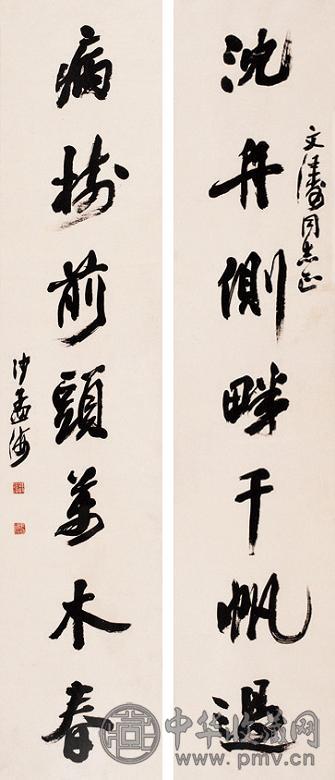 沈舟側畔千帆過
文濤同志正
病樹前頭萬木春
沙孟海
中华收藏网
www.pmv.cn